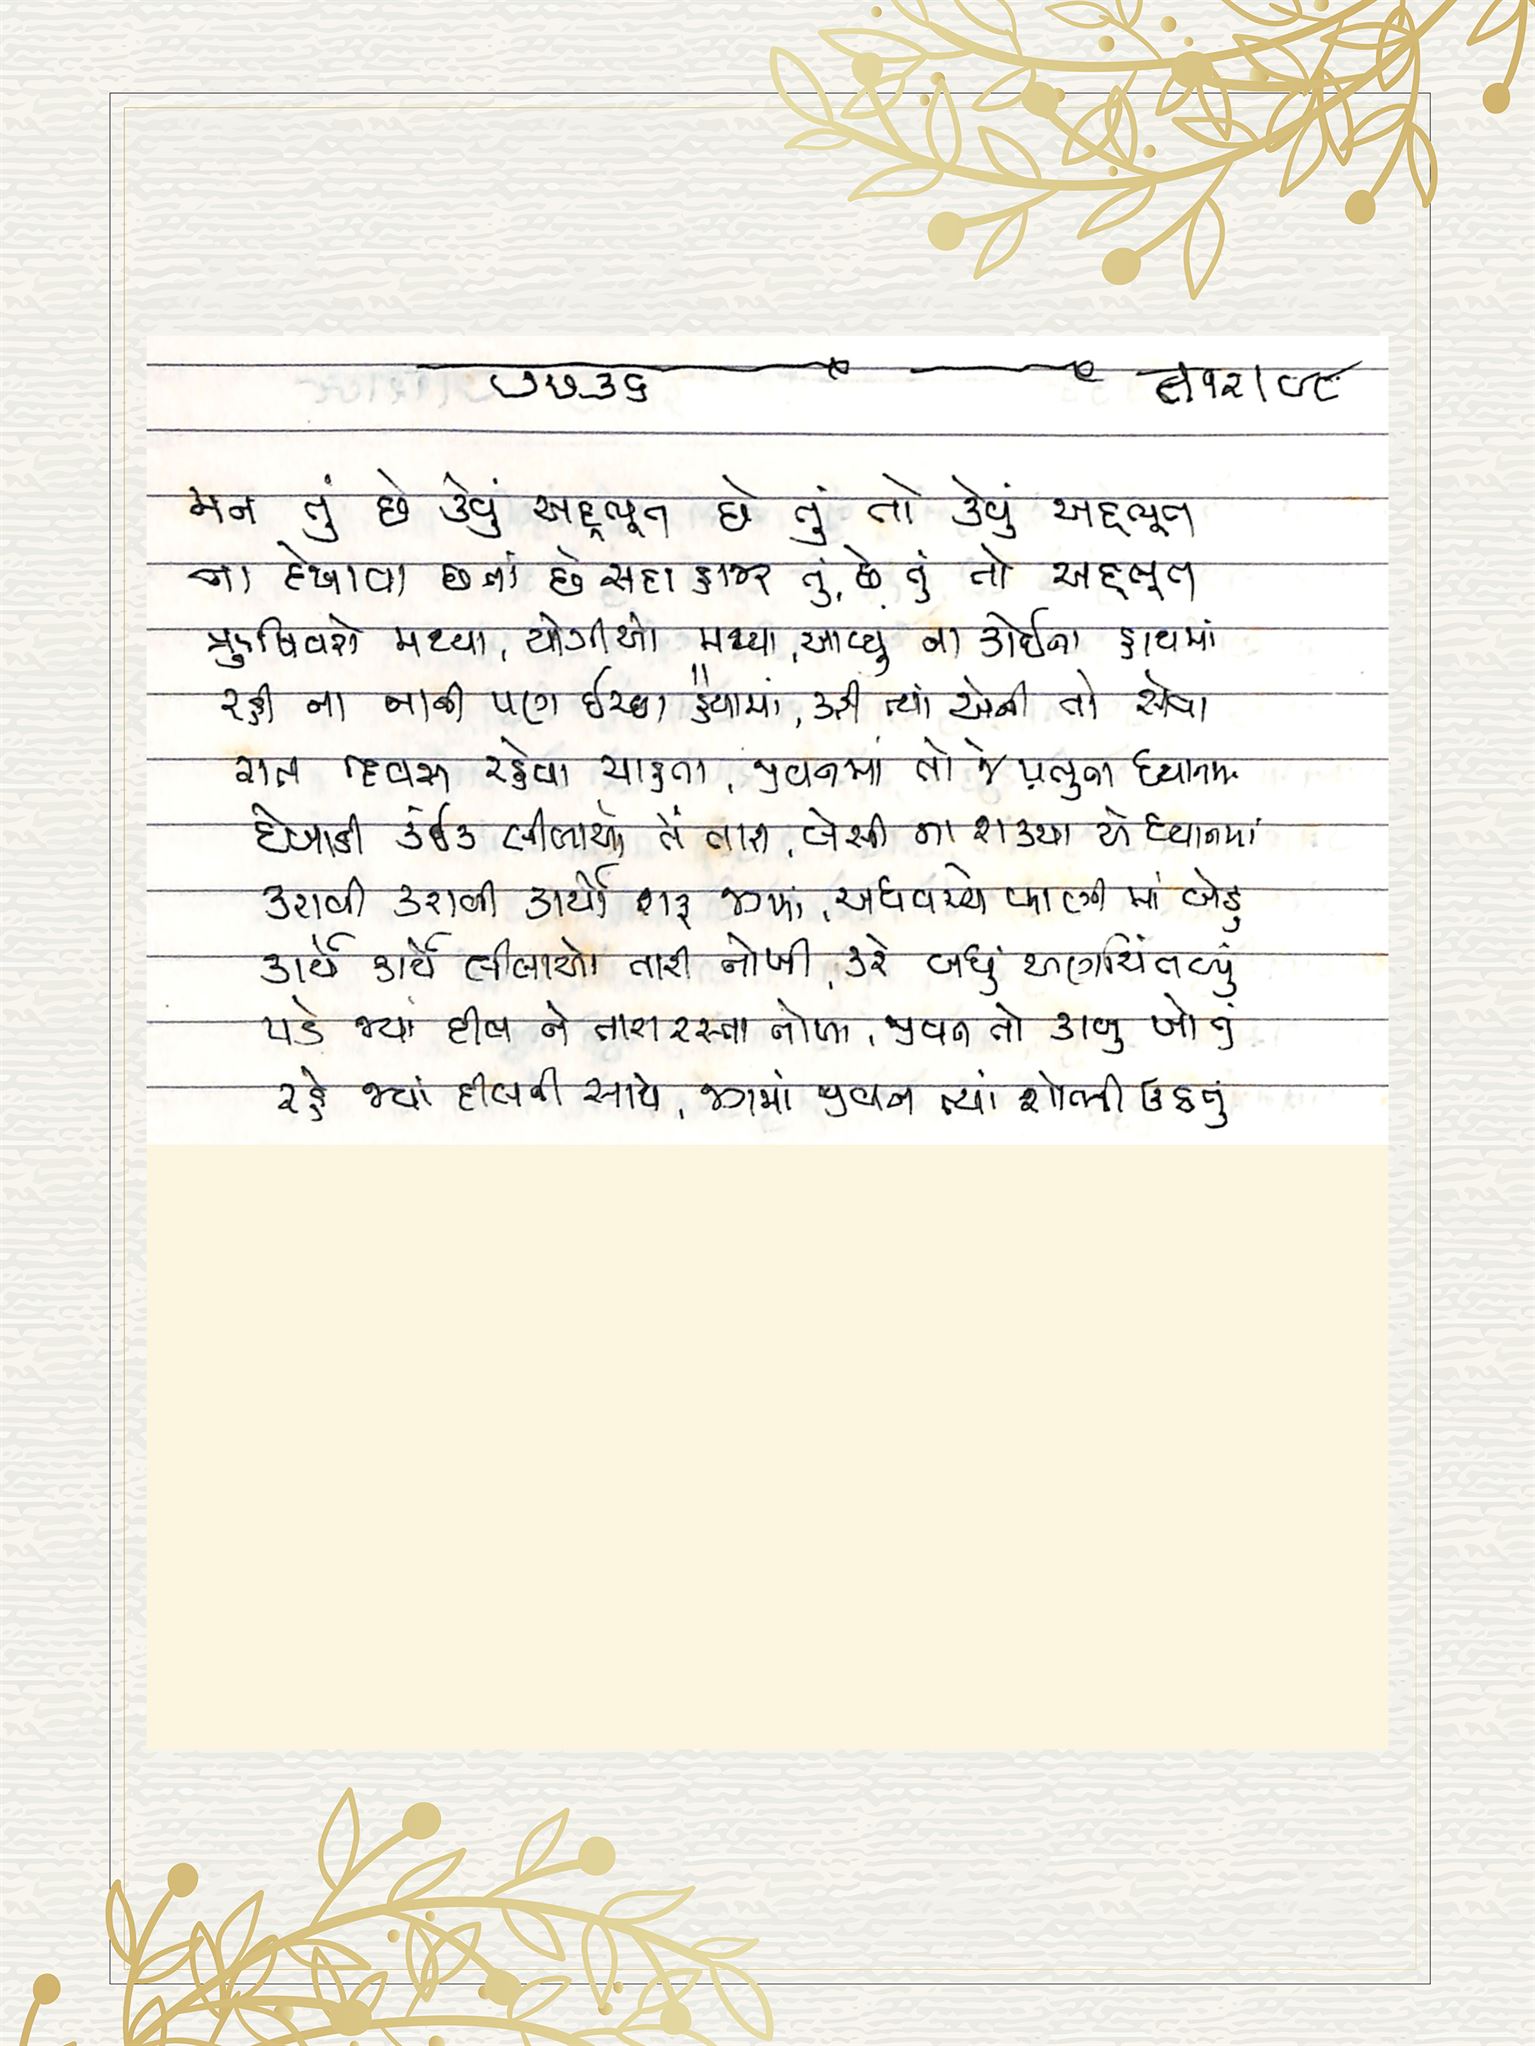 ૭૭૩૬ ૯।૧૨।૯૮
મન તું છે કેવું અદ્ભૂત છે તું તો કેવું અદ્ભૂત
ના દેખાવા છતાં છે સદા હાજર તું, છે તું તો અદ્ભૂત
ઋષિવરો મથ્યા, યોગીઓ મથ્યા, આવ્યું ના કોઈના હાથમાં
રહી ના બાકી પણ ઈચ્છા હૈયામાં, કરી ત્યાં એની તો સેવા
રાત દિવસ રહેવા ચાહતા, જીવનમાં તો જે પ્રભુના ધ્યાનમાં
દેખાડી કંઈક લીલાઓ તેં તારી, બેસી ના શક્યા એ ધ્યાનમાં
કરાવી કરાવી કાર્યો શરૂ જગમાં, અધવચ્ચે પાણીમાં બેઠું
કાર્યે કાર્યે લીલાઓ તારી નોખી, કરે બધું અણચિંતવ્યું
પડે જ્યાં દીલ ને તારા રસ્તા નોખા, જીવન તો કાબુ ખોતું
રહે જ્યાં દીલની સાથે, જગમાં જીવન ત્યાં શોભી ઉઠતું